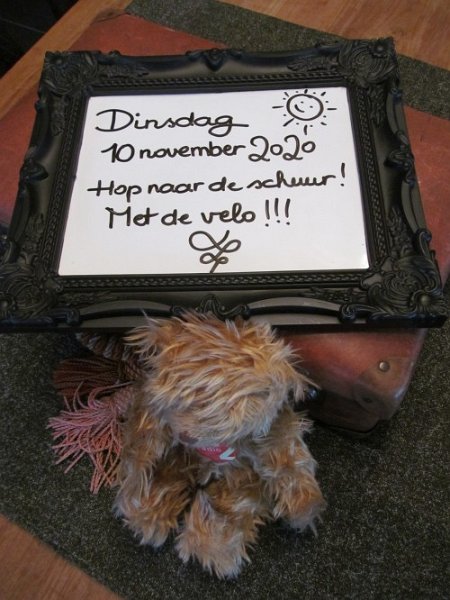 Dinsdag
10 november 2020
Hop naar de schuur!
Met de velo!!!